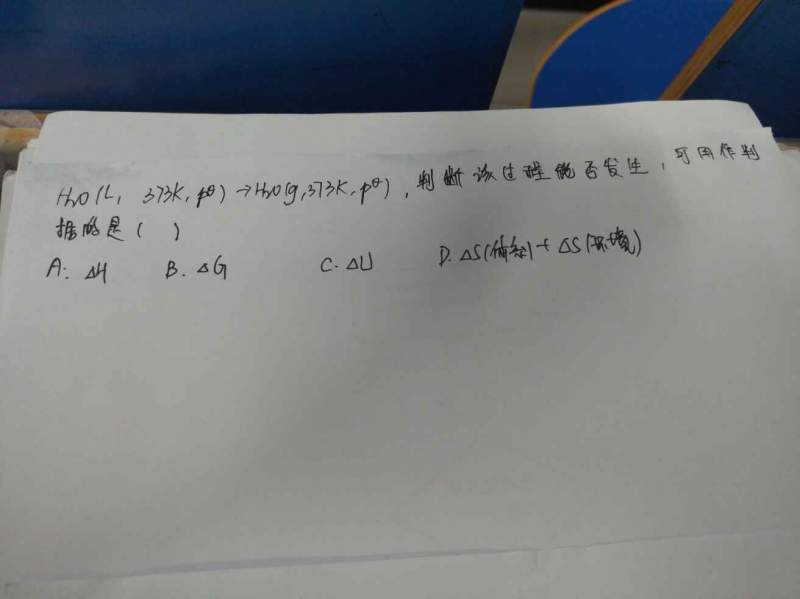 H₂O(l, 373K, pᶿ) → H₂O(g, 373K, pᶿ), 判断该过程能否发生, 可用作判
据的是( )
A. ΔH B. ΔG C. ΔU D. ΔS(体系) + ΔS(环境)